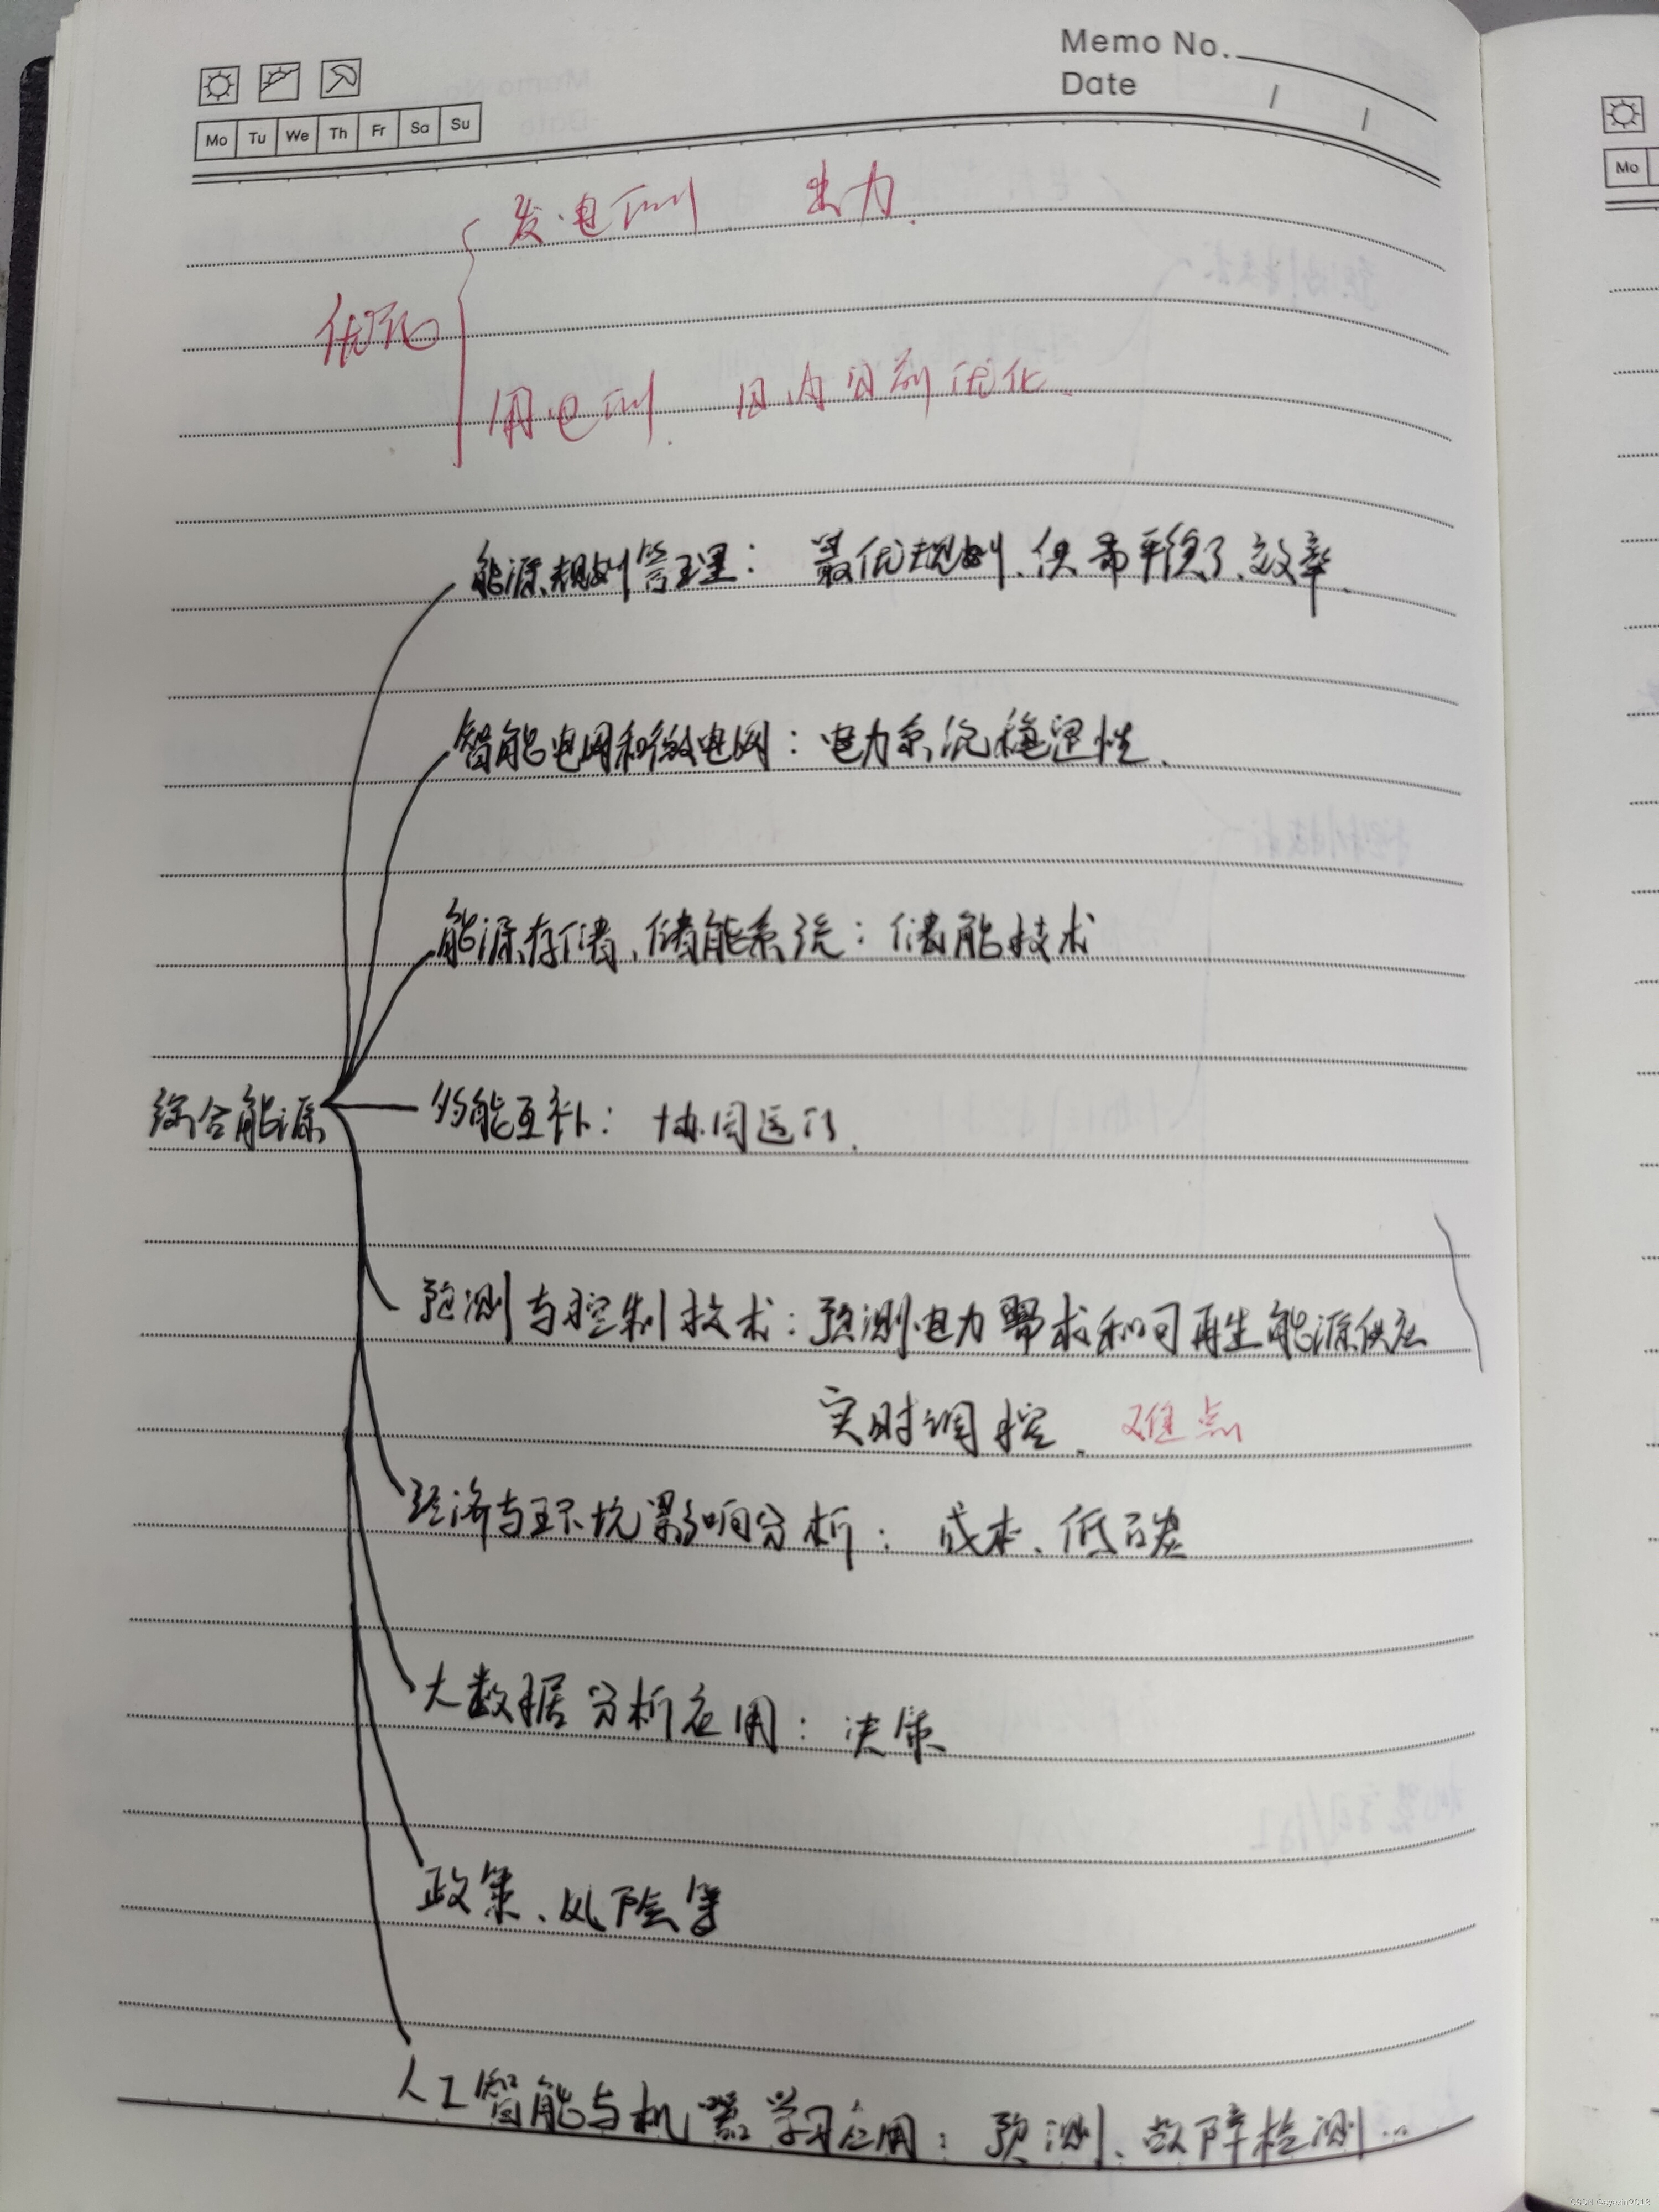 Memo No.
Date / /
Mo Tu We Th Fr Sa Su
Mo
发电侧 出力.
优化
用电侧. 日内日前优化.
能源规划管理: 最优规划、供需平衡、效率.
智能电网和微电网: 电力系统稳定性.
能源存储、储能系统: 储能技术
综合能源
多能互补: 协同运行.
预测与控制技术: 预测电力需求和可再生能源供应
实时调控. 难点
经济与环境影响分析: 成本、低碳
大数据分析应用: 决策
政策、风险等
人工智能与机器学习应用: 预测、故障检测...
CSDN @eyexin2018